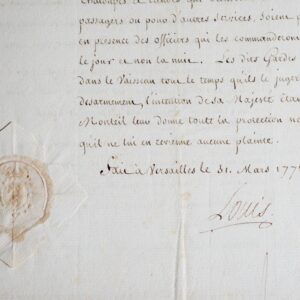 Chaloupes et canots qui
passagers ou pour d'autres services, soient
en presence des officiers qui les commanderont
le jour et non la nuit. Les dits Gardes
dans le Vaisseau tout le temps qu'ils le juger
desarmement, l'intention de sa Majesté étan
Monteil leur donne toute la protection ne
qu'il ne lui en revienne aucune plainte.
Fait à Versailles le 31. Mars 177
Louis